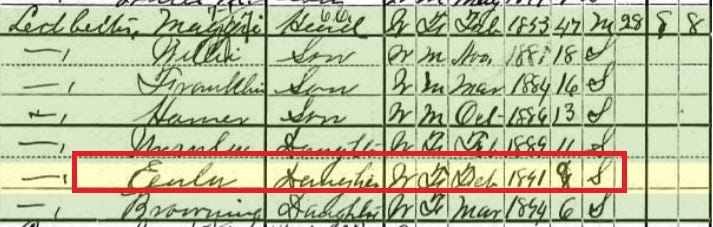 Ledbetter, Maggie Head W F Feb 1853 47 M 28 8 8
—, Willie Son W M Nov 1881 18 S
—, Franklin Son W M Mar 1884 16 S
—, Homer Son W M Oct 1886 13 S
—, Daughter W F Feb 1889 11 S
—, Eula Daughter W F Feb 1891 9 S
—, Browning Daughter W F Mar 1894 6 S